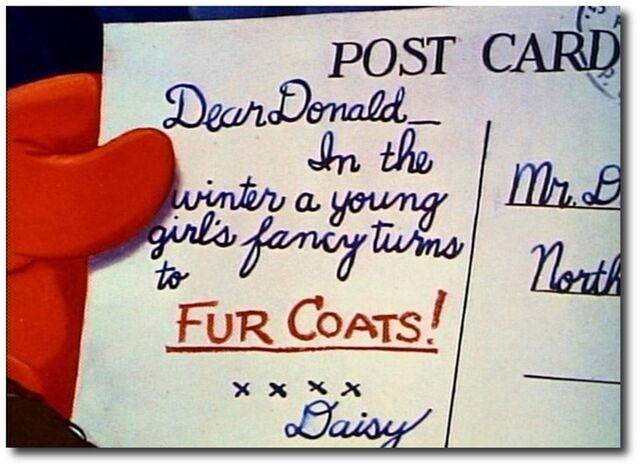 POST CARD
Dear Donald_
In the
winter a young
girl's fancy turns
to
FUR COATS!
x x x x
Daisy
Mr. D
North